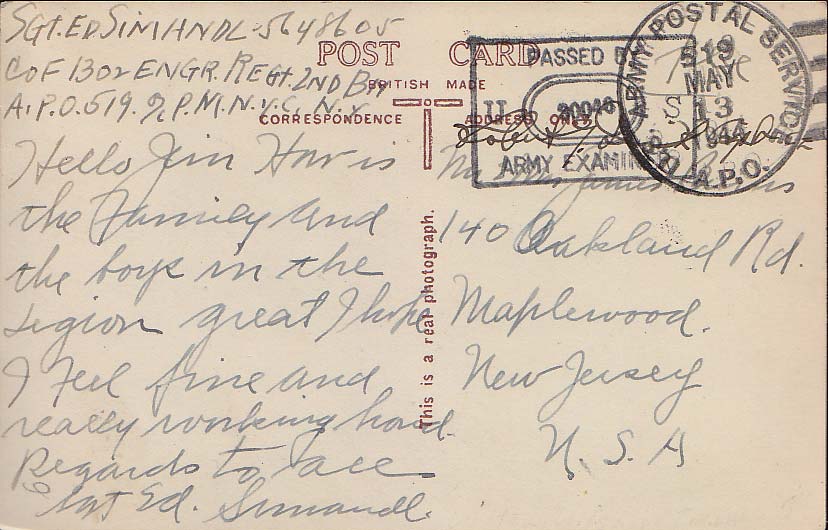 SGT. ED SIMANDL 5648605
Co F 1302 ENGR. REGT. 2ND Bn
A.P.O. 519. % P.M. N.Y.C. N.Y.
POST CARD
BRITISH MADE
CORRESPONDENCE
ADDRESS ONLY
Hello Jim How is
the Family and
the boys in the
Legion great I hope
I Feel fine and
really working hard.
Regards to all
Sgt Ed. Simandl.
This is a real photograph.
PASSED BY
ARMY EXAMINER
ARMY POSTAL SERVICE
519
MAY
13
1944
A.P.O.
Free
James
140 Oakland Rd.
Maplewood.
New Jersey
U. S. A